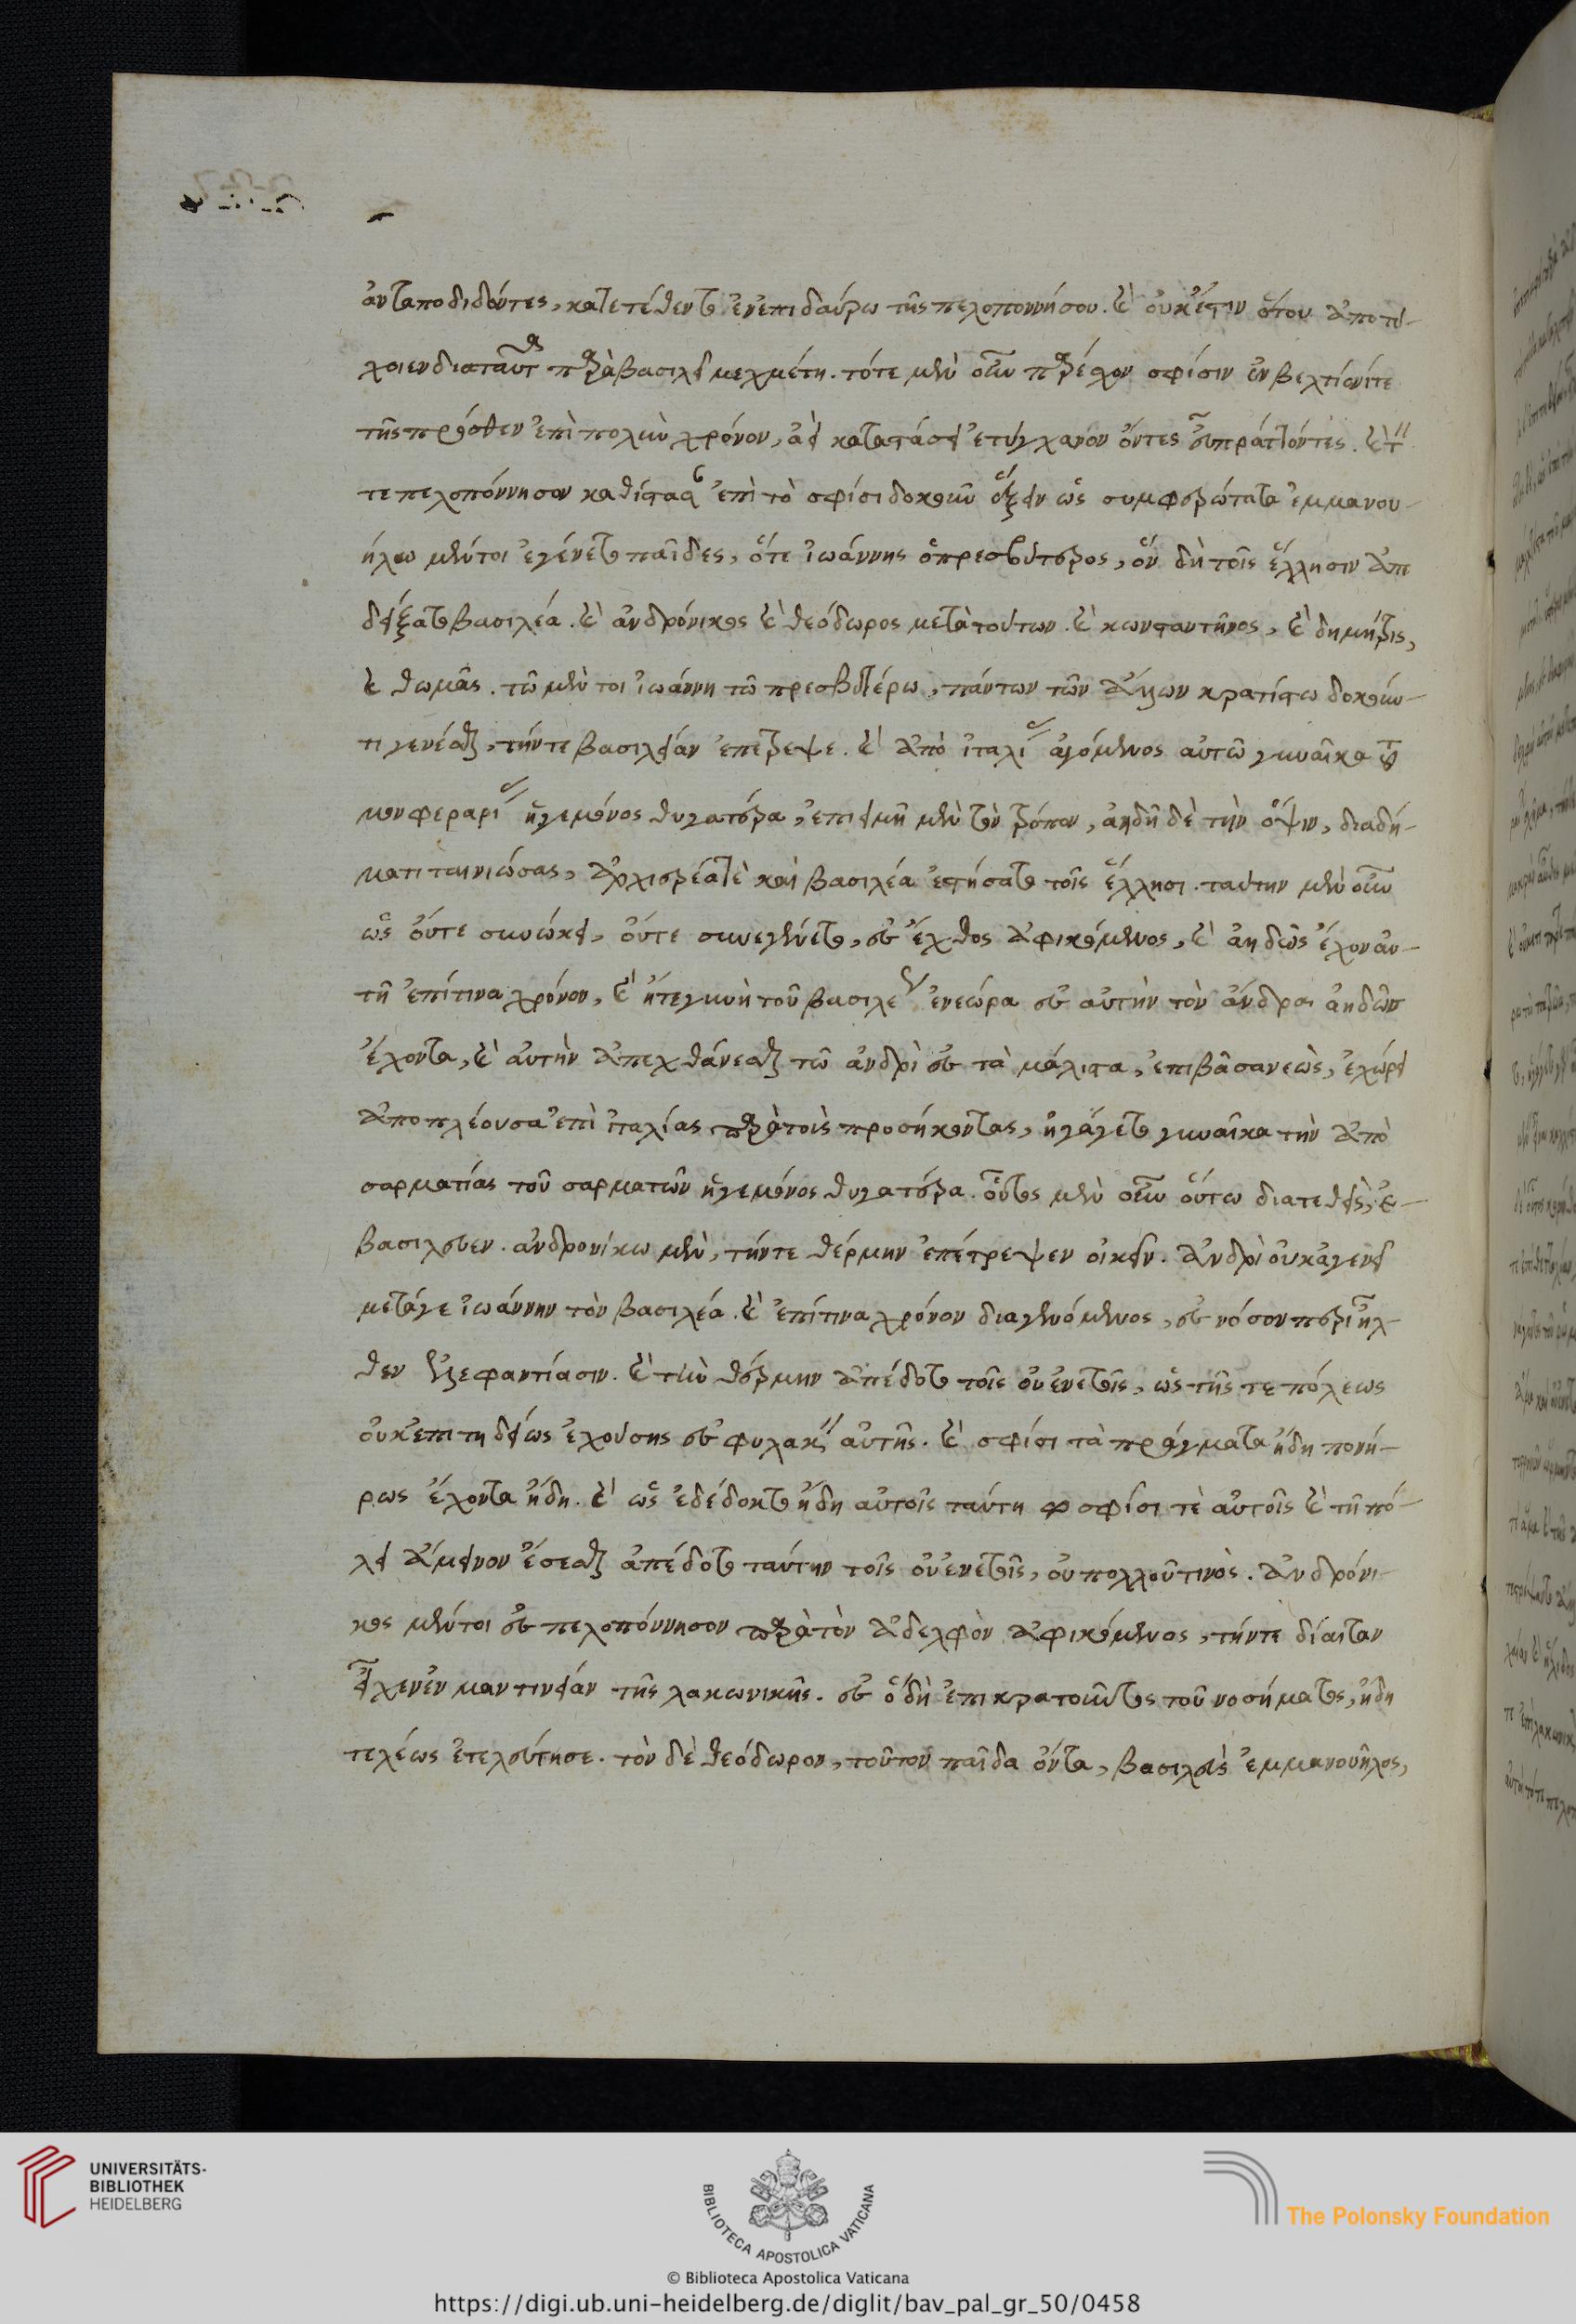 ἀνταποδιδόντες, κατετέθεντο ἐν ἐπιδαύρω τῆς πελοποννήσου. καὶ οὐκ ἔστιν ὅτου ἀποτύ-
χοιεν διαταῦτα παρὰ βασιλεῖ μεχμέτη. τότε μὲν οὖν παρέσχον σφίσιν ἐν βελτίονί τε
τῆς πρόσθεν ἐπὶ πολὺν χρόνον, ἀεὶ καταστάσει ἐτύγχανον ὄντες εὖ πράττοντες. καὶ τὴν
τε πελοπόννησον καθίστασαν ἐπὶ τὸ σφίσι δοκοῦν ἕξειν ὡς συμφορώτατα ἐμμανου-
ήλω μέντοι ἐγένετο παῖδες, ὅτε ἰωάννης ὁ πρεσβύτερος, ὃν δὴ τοῖς ἕλλησιν ἀπε
δείξατο βασιλέα. καὶ ἀνδρόνικος καὶ θεόδωρος μετὰ τούτων. καὶ κωνσταντῖνος, καὶ δημήτρις,
καὶ θωμᾶς. τῶ μέν τοι ἰωάννη τῶ πρεσβυτέρω, πάντων τῶν ἄλλων κρατίστω δοκοῦν-
τι γενέσθαι, τήν τε βασιλείαν ἐπέτρεψε. καὶ ἀπὸ ἰταλίας ἀγόμενος αὐτῶ γυναῖκα τοῦ
μονφεραρίας ἡγεμόνος θυγατέρα, ἐπιεικῆ μὲν τὸν τρόπον, ἀηδῆ δὲ τὴν ὄψιν, διαδή-
ματι ταινιώσας, ἀρχιερέα τὲ καὶ βασιλέα ἐστήσατο τοῖς ἕλλησι. ταύτην μὲν οὖν
ὡς οὔτε συνώκει, οὔτε συνεγένετο, εἰς ἔχθος ἀφικόμενος, καὶ ἀηδῶς ἔχον αυ-
τῆ ἐπίτινα χρόνον, καὶ ἥτε γυνὴ τοῦ βασιλέως ἐνεώρα εἰς αὐτὴν τὸν ἄνδρα ἀηδῶς
ἔχοντα, καὶ αὐτὴν ἀπεχθάνεσθαι τῶ ἀνδρὶ εἰς τὰ μάλιστα, ἐπιβᾶσα νεὼς, ἐχώρει
ἀποπλέουσα ἐπὶ ἰταλίας παρὰ τοὺς προσήκοντας, ἠγάγετο γυναῖκα τὴν ἀπὸ
σαρματίας τοῦ σαρματῶν ἡγεμόνος θυγατέρα. οὗτος μὲν οὖν οὕτω διατεθεὶς, ἐ-
βασίλευεν. ἀνδρονίκω μὲν, τήντε θέρμην ἐπέτρεψεν οἰκεῖν. ἀνδρὶ οὐκ ἀγενεῖ
μετάγε ἰωάννην τὸν βασιλέα. καὶ ἐπίτινα χρόνον διαγενόμενος, εἰς νόσον περιῆλ-
θεν ἐλεφαντίασιν. καὶ τὴν θέρμην ἀπέδοτο τοῖς οὐενετοῖς, ὡς τῆς τε πόλεως
οὐκ ἐπιτηδείως ἐχούσης εἰς φυλακὴν αὐτῆς. καὶ σφίσι τὰ πράγματα ἤδη πονή-
ρως ἔχοντα ἤδη. καὶ ὡς ἐδέδοκτο ἤδη αὐτοῖς ταύτη φ σφίσι τὲ αὐτοῖς καὶ τῆ πό-
λει ἄμεινον ἔσεσθαι ἀπέδοτο ταύτην τοῖς οὐενετοῖς, οὐ πολλοῦ τινὸς. ἀνδρόνι-
κος μέντοι εἰς πελοπόννησον παρὰ τὸν ἀδελφὸν ἀφικόμενος, τήντε δίαιταν
εἶχεν ἐν μαντινείαν τῆς λακωνικῆς. εἰς ὃ δὴ ἐπικρατοῦντος τοῦ νοσήματος, ἤδη
τελέως ἐτελεύτησε. τὸν δὲ θεόδωρον, τοῦτον παῖδα ὄντα, βασιλεὺς ἐμμανουῆλος,
UNIVERSITÄTS-
BIBLIOTHEK
HEIDELBERG
BIBLIOTECA APOSTOLICA VATICANA
The Polonsky Foundation
© Biblioteca Apostolica Vaticana
https://digi.ub.uni-heidelberg.de/diglit/bav_pal_gr_50/0458